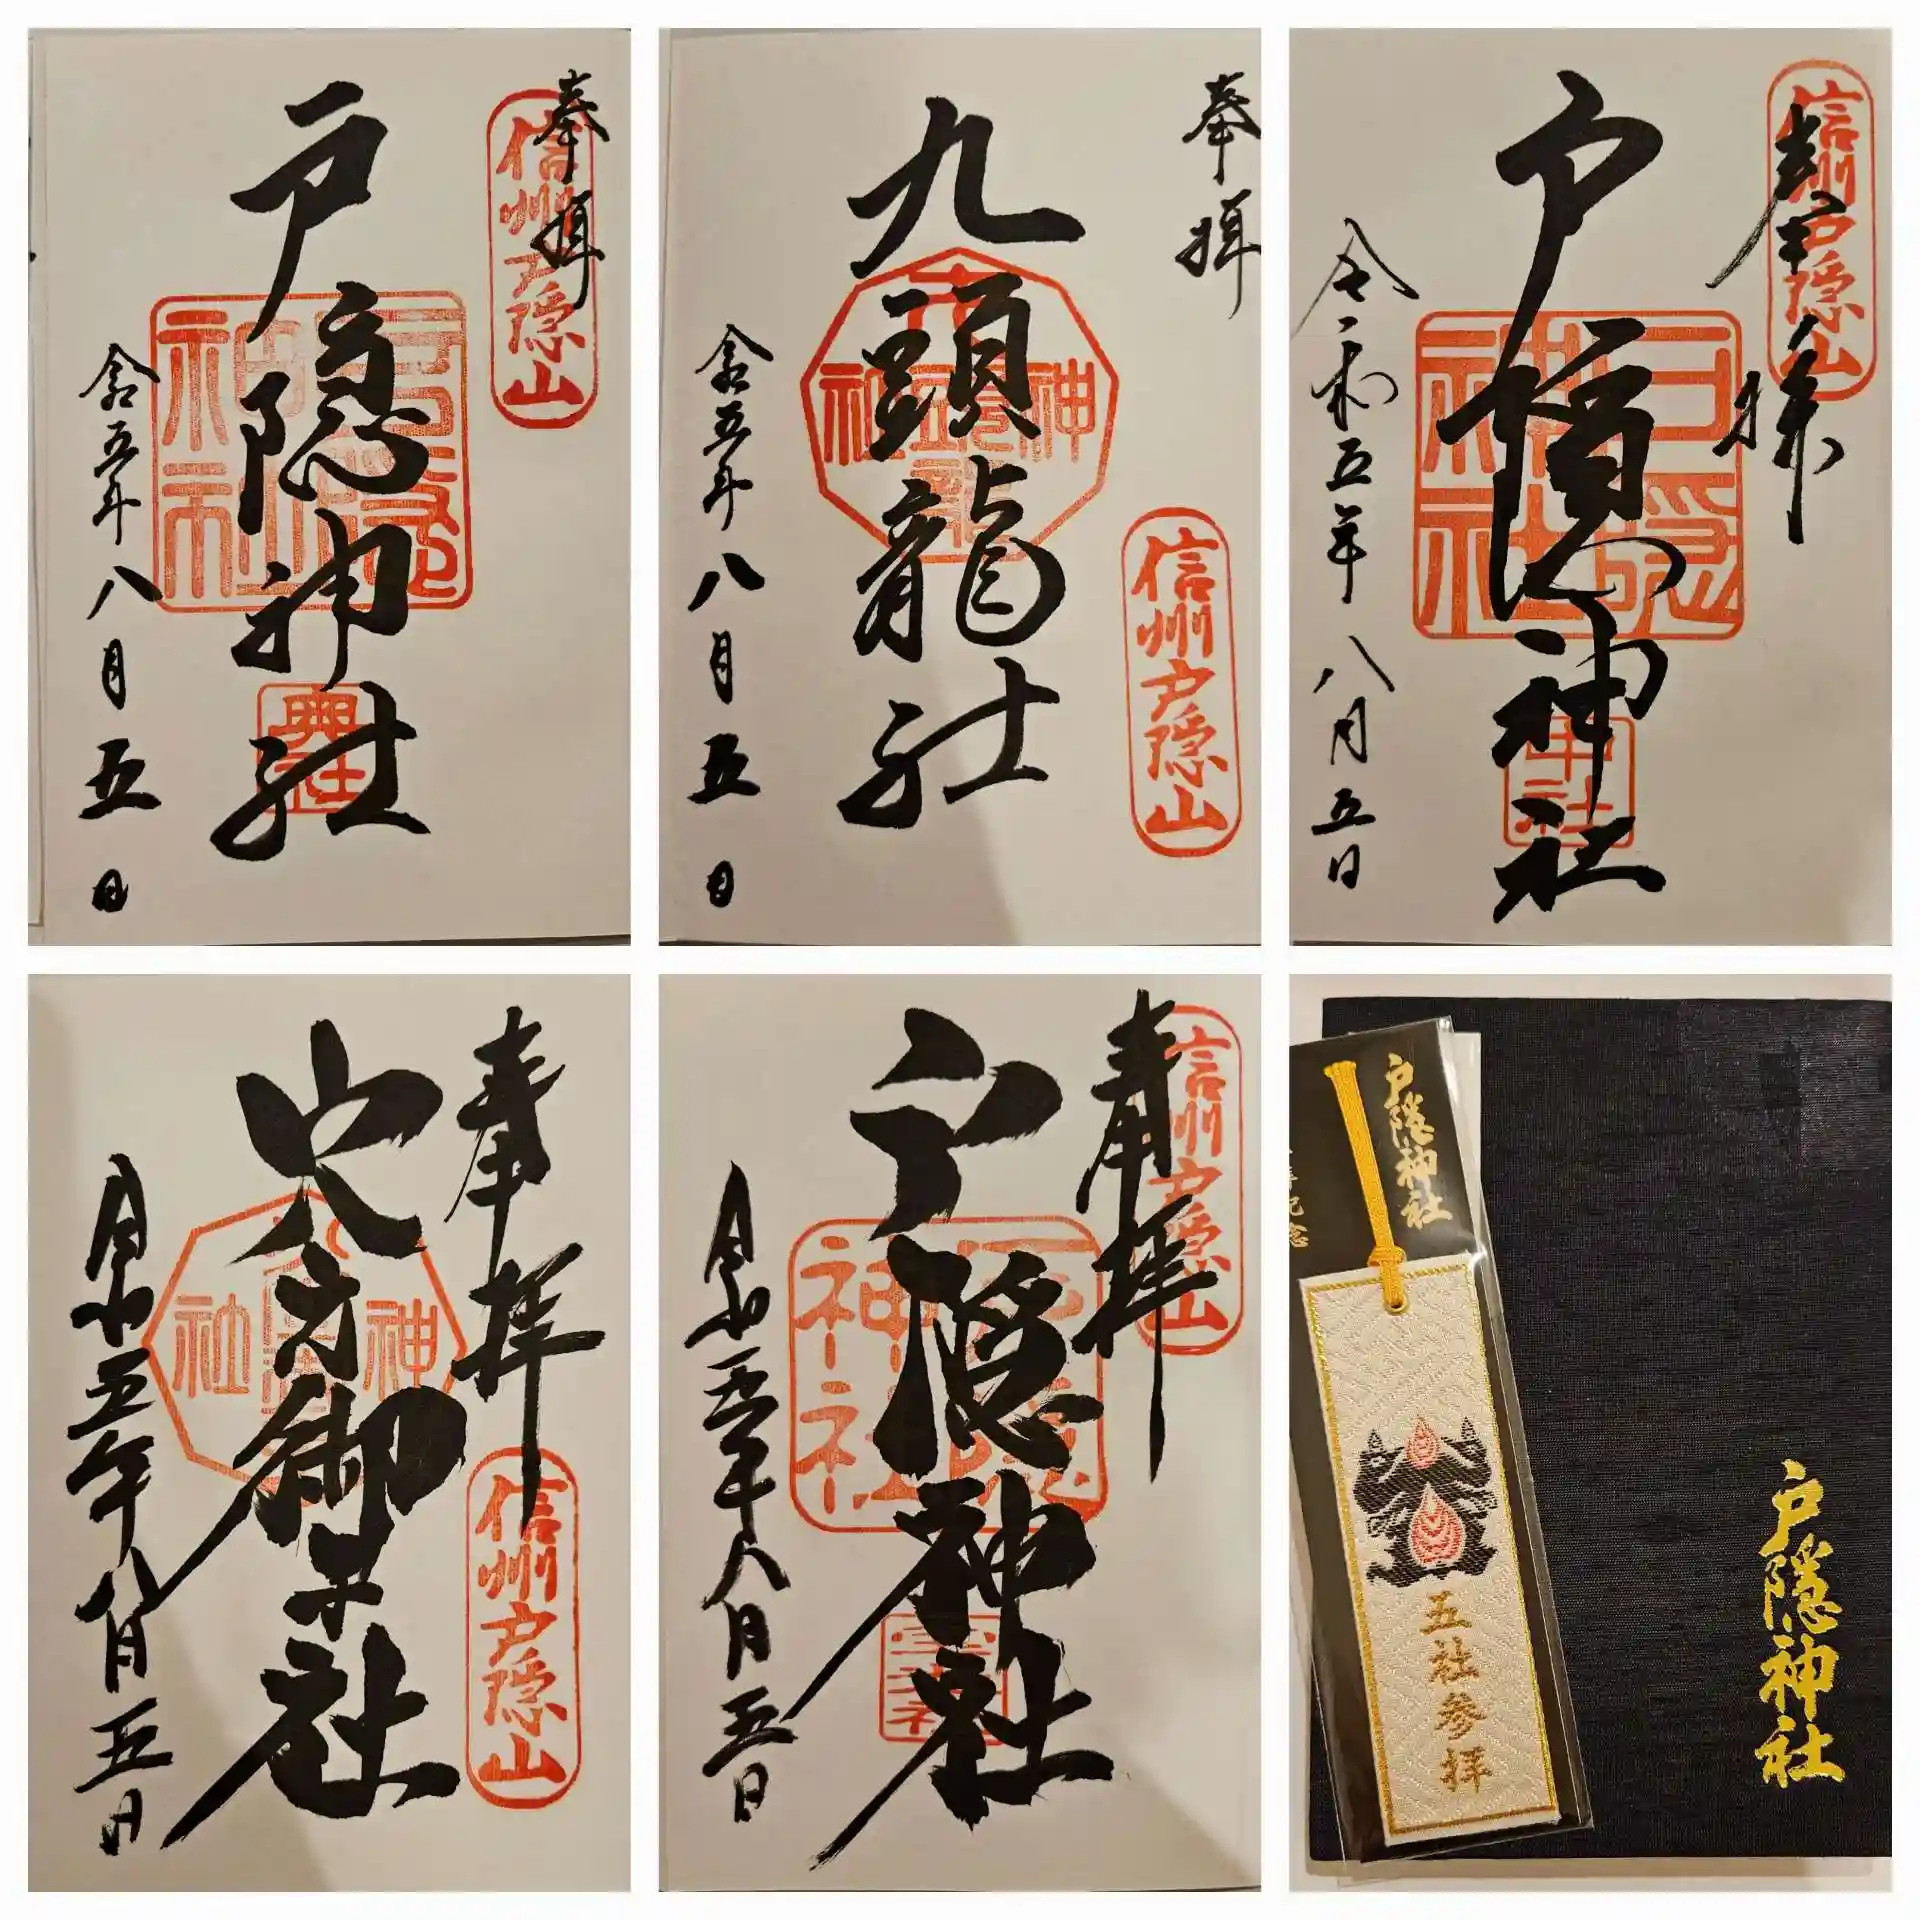 奉拝
信州戸隠山
戸隠神社
神社
奥社
令和五年八月五日
奉拝
九頭龍社
神社
信州戸隠山
令和五年八月五日
奉拝
信州戸隠山
戸隠神社
戸隠神社
中社
令和五年八月五日
奉拝
火之御子社
神社
信州戸隠山
令和五年八月五日
奉拝
信州戸隠山
戸隠神社
神社
宝光社
令和五年八月五日
戸隠神社
五社参拝
戸隠神社